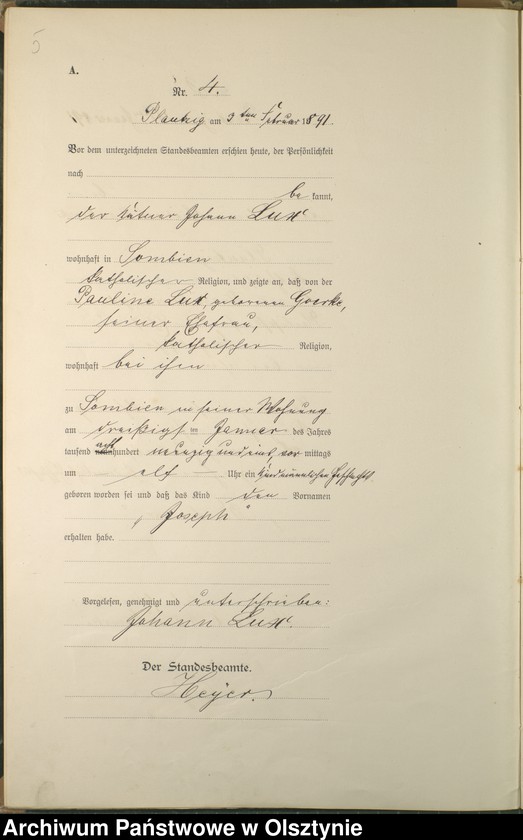 5
A.
Nr. 4.
Plautzig am 3ten Februar 1891.
Vor dem unterzeichneten Standesbeamten erschien heute, der Persönlichkeit
nach
be kannt,
der Kätner Johann Lux
wohnhaft in Sombien
katholischer Religion, und zeigte an, daß von der
Pauline Lux, geborenen Goerke,
seiner Ehefrau,
katholischer Religion,
wohnhaft bei ihm
zu Sombien in seiner Wohnung
am dreißigst en Januar des Jahres
tausend acht hundert neunzig und eins, vor mittags
um elf Uhr ein Kind männlichen Geschlechts
geboren worden sei und daß das Kind den Vornamen
„Joseph"
erhalten habe.
Vorgelesen, genehmigt und unterschrieben:
Johann Lux.
Der Standesbeamte.
Heyer.
Archiwum Państwowe w Olsztynie